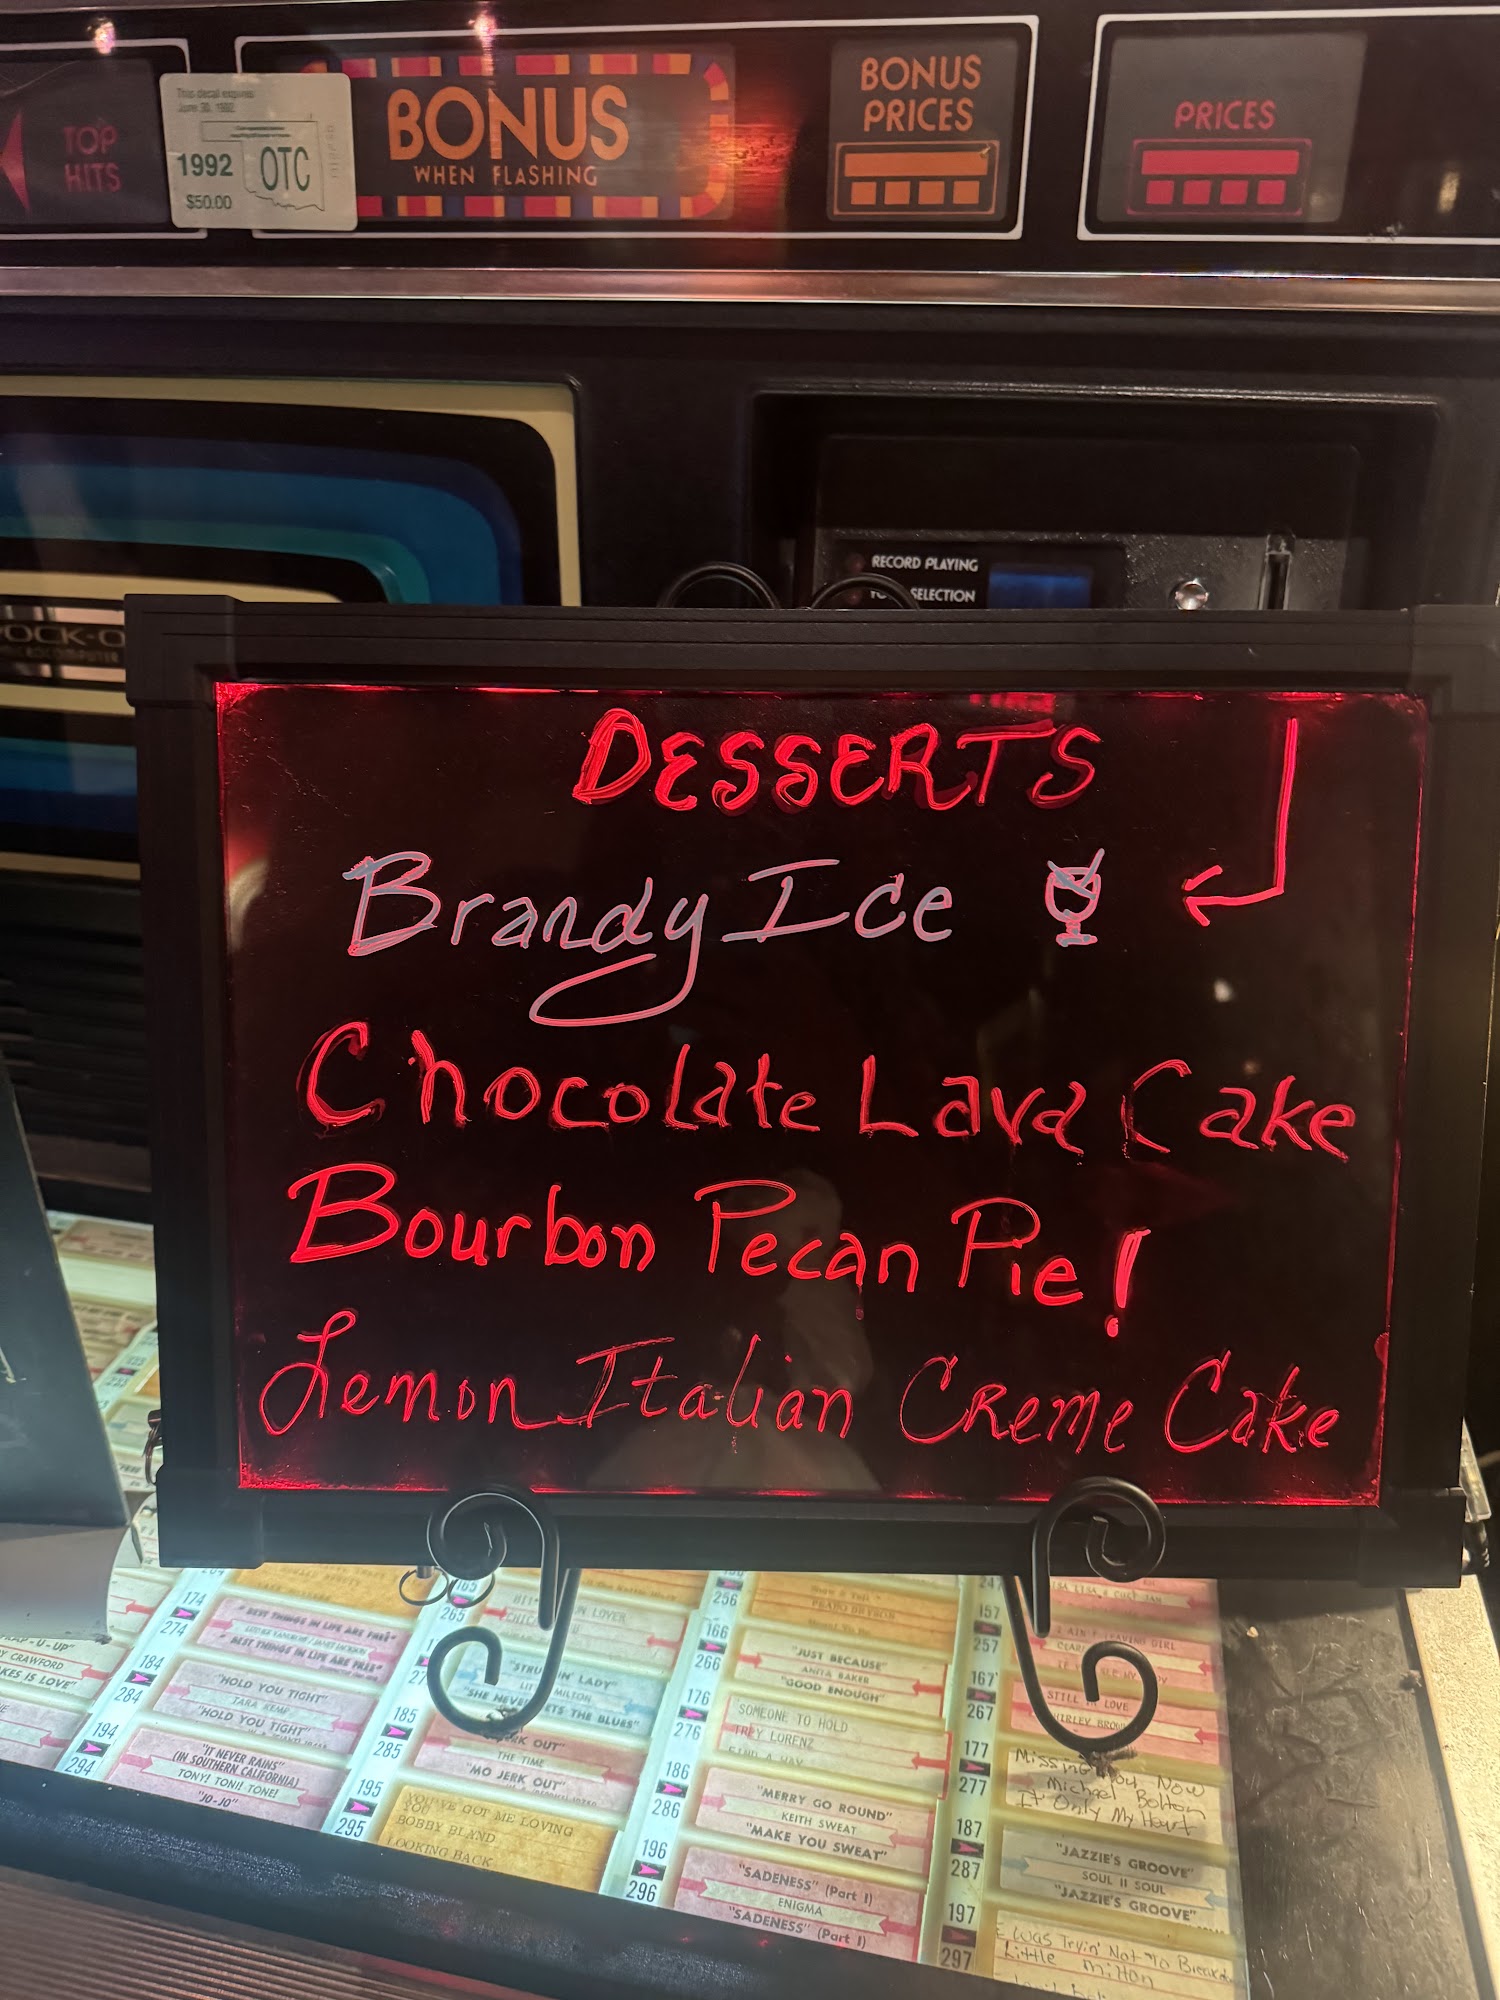 TOP
HITS
This decal expires
June 30, 1992
1992
OTC
$50.00
BONUS
WHEN FLASHING
BONUS
PRICES
PRICES
RECORD PLAYING
SELECTION
DESSERTS
Brandy Ice
Chocolate Lava Cake
Bourbon Pecan Pie!
Lemon Italian Creme Cake
174
274
"BEST THINGS IN LIFE ARE FREE"
"BEST THINGS IN LIFE ARE FREE"
184
284
"HOLD YOU TIGHT"
TARA KEMP
"HOLD YOU TIGHT"
194
294
"IT NEVER RAINS"
(IN SOUTHERN CALIFORNIA)
TONY! TONI! TONE!
"JO-JO"
CRAWFORD
IS LOVE"
165
265
LOVER
LADY"
MILTON
"SHE NEVER GETS THE BLUES"
185
285
THE TIME
"MO JERK OUT"
195
295
YOU'VE GOT ME LOVING
YOU
BOBBY BLAND
LOOKING BACK
256
166
266
"JUST BECAUSE"
ANITA BAKER
"GOOD ENOUGH"
176
276
SOMEONE TO HOLD
TREY LORENZ
186
286
"MERRY GO ROUND"
KEITH SWEAT
"MAKE YOU SWEAT"
196
296
"SADENESS" (Part I)
ENIGMA
"SADENESS" (Part I)
247
157
257
GIRL
167
267
STILL IN LOVE
SHIRLEY BROWN
177
277
Missing You Now
Michael Bolton
It Only My Heart
187
287
"JAZZIE'S GROOVE"
SOUL II SOUL
"JAZZIE'S GROOVE"
197
297
I WAS Tryin' Not To Breakdown
Little Milton